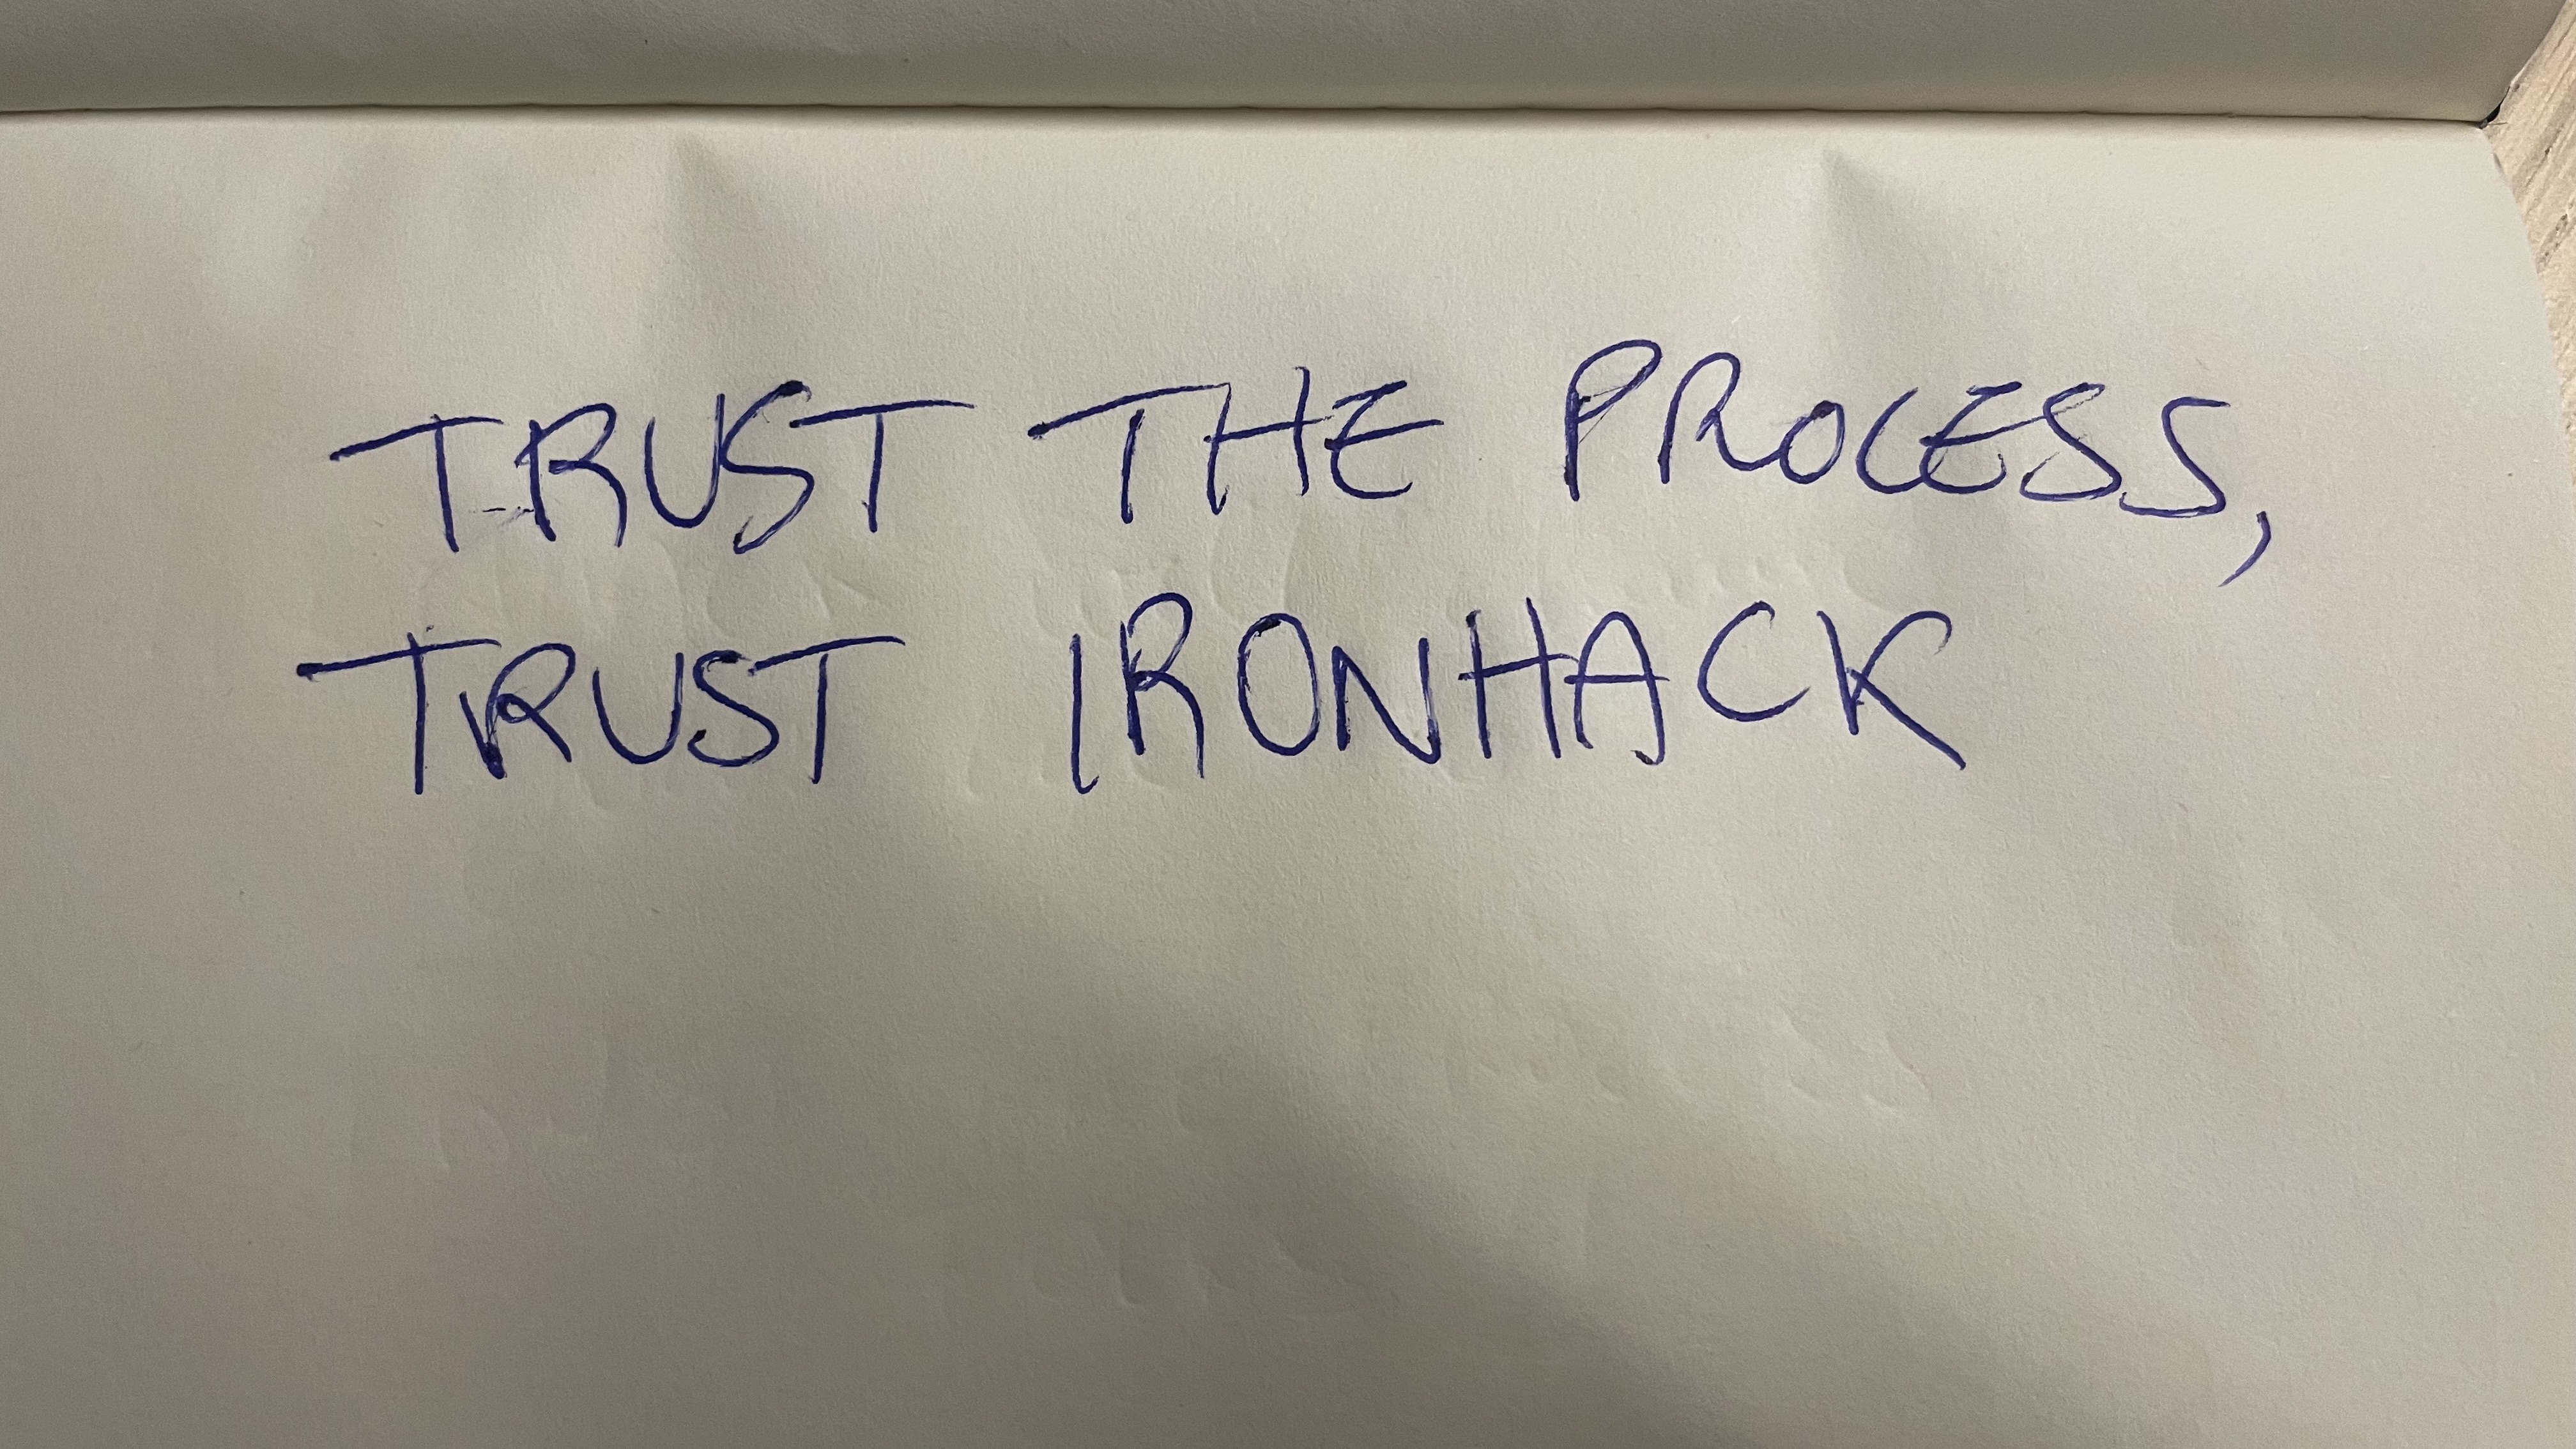 TRUST THE PROCESS,
TRUST IRONHACK